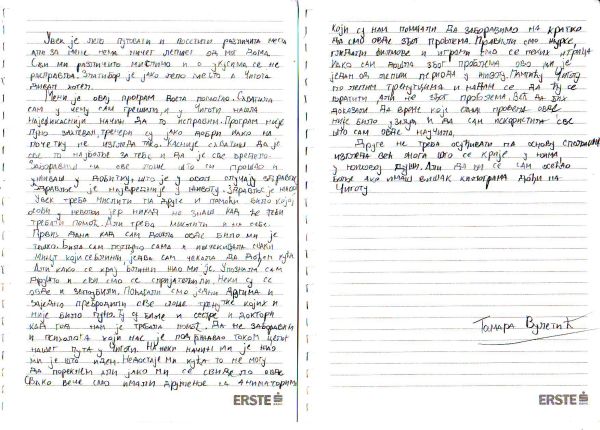 Увек је лепо путовати и посетити различита места
али за мене нема ничег лепшег од мог дома.
Сви ми различито мислимо и о укусима се не
расправља. Златибор је јако лепо место а Чигота
диван хотел.
Мени је овај програм доста помогао. Схватила
сам у чему сам грешила и у Чиготи нашла
најефикаснији начин да то исправим. Програм није
пуно захтеван, тренери су јако добри иако на
почетку не изгледа тако. Касније схватиш да је
све то најбоље за тебе и да је све вредело.
Заборавиш на све лоше што си прошао и
уживаш у добитку, што је у овом случају здравље.
Здравље је највредније у животу.
Увек треба мислити на друге и помоћи било којој
особи у невољи јер никад не знаш кад ће теби
требати помоћ. Али треба мислити и на себе.
Првих дана кад сам дошла овде било ми је
тешко. Била сам потпуно сама и ишчекивала сваки
минут који се ближи, једва сам чекала да дођем кући.
Али како се крај ближи жао ми је. Упознала сам
друштво и сви смо се спријатељили. Неки су се
овде и заљубили. Помагали смо једни другима и
заједно пребродили све лоше тренутке којих и
није било пуно. Ту су биле и сестре и доктори
кад год нам је требала помоћ. Да не заборавим
и психолога који нас је подржавао током целог
нашег пута у Чиготи. На неки начин ми је жао
ми је што идем. Недостаје ми кућа то не могу
да порекнем али јако ми се свидело овде.
Свако вече смо имали дружење са аниматорима
ERSTE
који су нам помагали да заборавимо на кратко
да смо овде због проблема. Правили смо журке,
гледали филмове и играли смо се неких играца
Иако сам дошла због проблема ово ми је
један од лепших периода у животу. Памтићу Чиготу
по лепим тренуцима и надам се да ћу се
вратити али не због проблема. Већ да бих
доказала да време које сам провела овде
није било узалуд и да сам искористила све
што сам овде научила.
Друге не треба осуђивати на основу спољашњег
изгледа већ онога што се крије у њима
у њиховој души. Али да би се сам осећао
боље ако имаш вишак килограма дођи на
Чиготу.
Тамара Вулетић
ERSTE